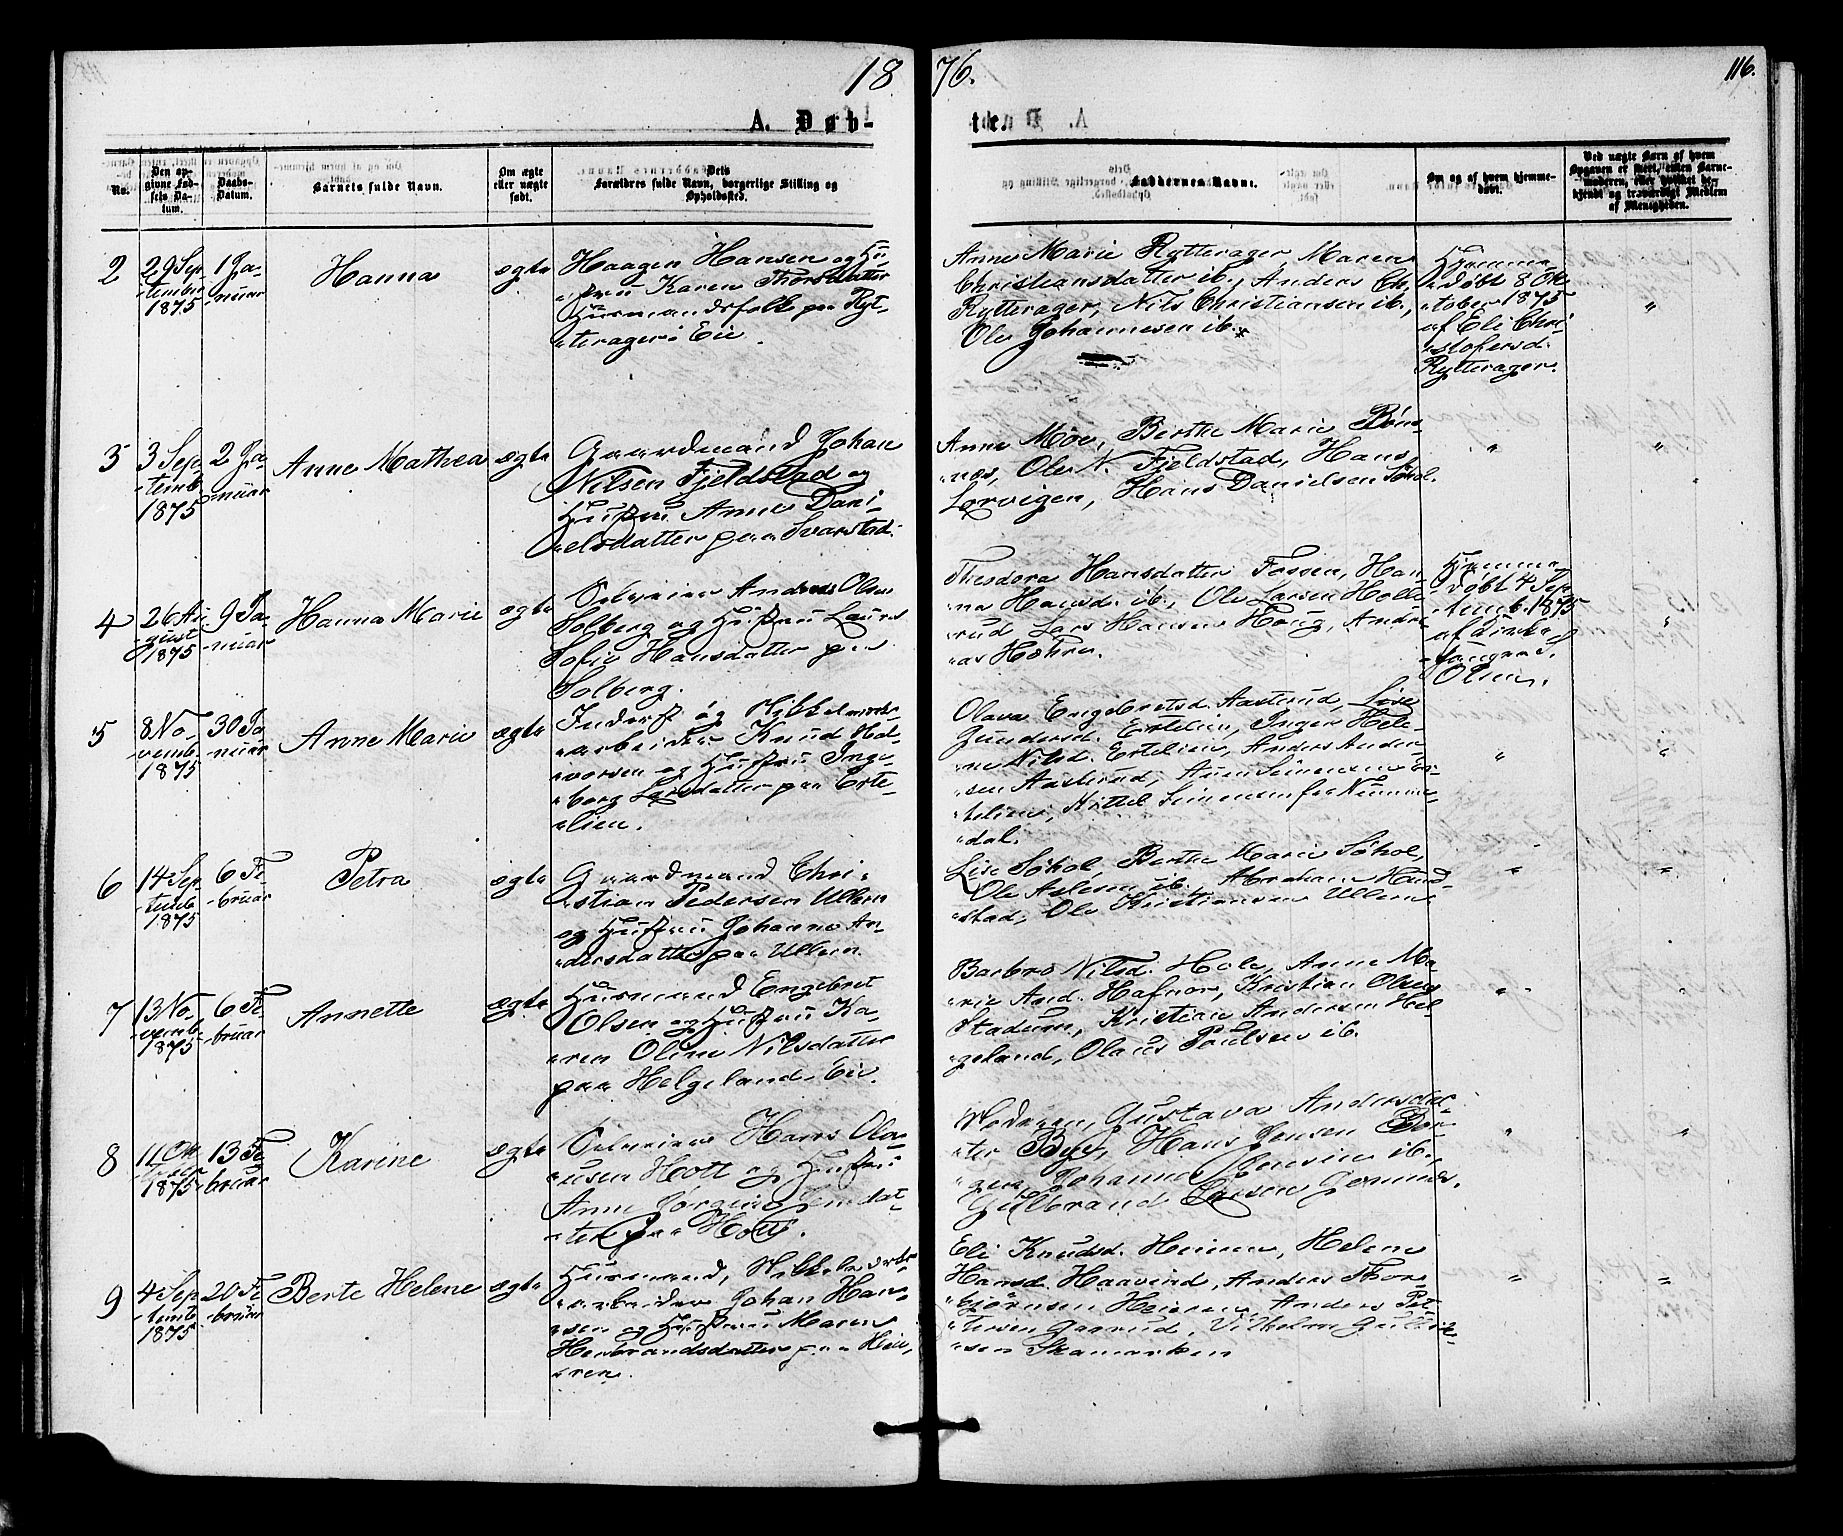 1876.
116.
A. Døbte.
No.
Den opgivne Fødsels Datum.
Daabs-Datum.
Barnets fulde Navn.
Om ægte eller uægte født.
Dets Forældres fulde Navn, borgerlige Stilling og Opholdssted.
Faddernes Navne.
Om og af hvem hjemmedøbt.
Ved uægte Børn af hvem Opgaven er skeet, enten Barnemoderen, eller hvilket bekjendt og troværdigt Medlem af Menigheden.
2
29 Sep-
-tember
1875
1 Ja-
-nuar
Hanna
ægte
Haagen Hansen og Hu-
-stru Karen Thorsdatter
Husmandsfolk paa Ryt-
-terager Eie
Anne Marie Rytterager Maren
Christiansdatter ib., Anders Ch.
Rytterager, Nils Christiansen ib.,
Ole Johannesen ib.
Hjemme-
-døbt 8 Ok-
-tober 1875
af Eli Chri-
-stofersd.
Rytterager.
"
3
3 Sep-
-temb.
1875
2 Ja-
-nuar
Anne Mathea
ægte
Gaardmand Johan
Nilsen Fjeldstad og
Hustru Anne Dani-
-elsdatter paa Svarstad.
Anne Moe, Berthe Marie Bøn-
-næs, Ole N. Fjeldstad, Hans
Lorvigen, Hans Danielsen Søhol.
"
"
4
26 Au-
-gust
1875
9 Ja-
-nuar
Hanna Marie
ægte
Selveier Andreas Olsen
Solberg og Hustru Laura
Sofie Hansdatter paa
Solberg.
Theodora Hansdatter Fossen, Han-
-na Hansd. ib., Ole Larsen Holle-
-rud Lars Hansen Houg, Andre-
-as Hæhre.
Hjemme-
-døbt 4 Sep-
-temb. 1875
af Kirke-
-sanger
Olsen.
"
5
8 No-
-vemb.
1875
30 Ja-
-nuar
Anne Marie
ægte
Inderst og Nikkelverks-
-arbeider Knud Hal-
-vorsen og Hustru Inge-
-borg Larsdatter paa Erte-
-lien.
Olava Engebretsd. Aasterud, Lise
Gundersd. Ertelien, Inger Hele-
-ne Nilsd. Ertelien, Anders Ander-
-sen Aasterud, Auen Simensen Er-
-telien, Kittel Simensen fra Numme-
-dal.
"
"
6
14 Sep-
-temb.
1875
6 Fe-
-bruar
Petra
ægte
Gaardmand Chri-
-stian Pedersen Ullern
og Hustru Johanne An-
-dersdatter paa Ullern.
Lise Søhol, Berthe Marie Søhol,
Ole Aslesen ib. Abraham Hund-
-stad, Ole Kristiansen Ullern
"
"
7
13 No-
-vemb.
1875
6 Fe-
-bruar
Annette
ægte
Husmand Engebret
Olsen og Hustru Ka-
-ren Oline Nilsdatter
paa Helgelands-Eie.
Barbro Nilsd. Hole, Anne Ma-
-rie And. Hafnor, Kristian Olsen
Stadum, Kristian Andersen Hel-
-geland, Olaus Paulsen ib.
"
"
8
11 Ok-
-tober
1875
13 Fe-
-bruar
Karine
ægte
Selveier Hans Ola-
-usen Hott og Hustru
Anne Jørgine Jensdat-
-ter paa Hott.
Moderen, Gustava Andersdat-
-ter By, Hans Jensen Bor-
-gen, Johannes Jensen ib.,
Gulbrand Larsen Gomnes.
"
"
9
4 Sep-
-temb.
1875
20 Fe-
-bruar
Berte Helene
ægte
Husmand, Nikkelverks-
-arbeider Johan Han-
-sen og Hustru Maren
Henbrandsdatter paa Hei-
-eren.
Eli Knudsd. Heieren, Helene
Hansd. Haavind, Anders Thor-
-bjørnsen Heieren, Anders Pet-
-tersen Gaarud, Vilhelm Gulbrik-
-sen Skamarken
"
"